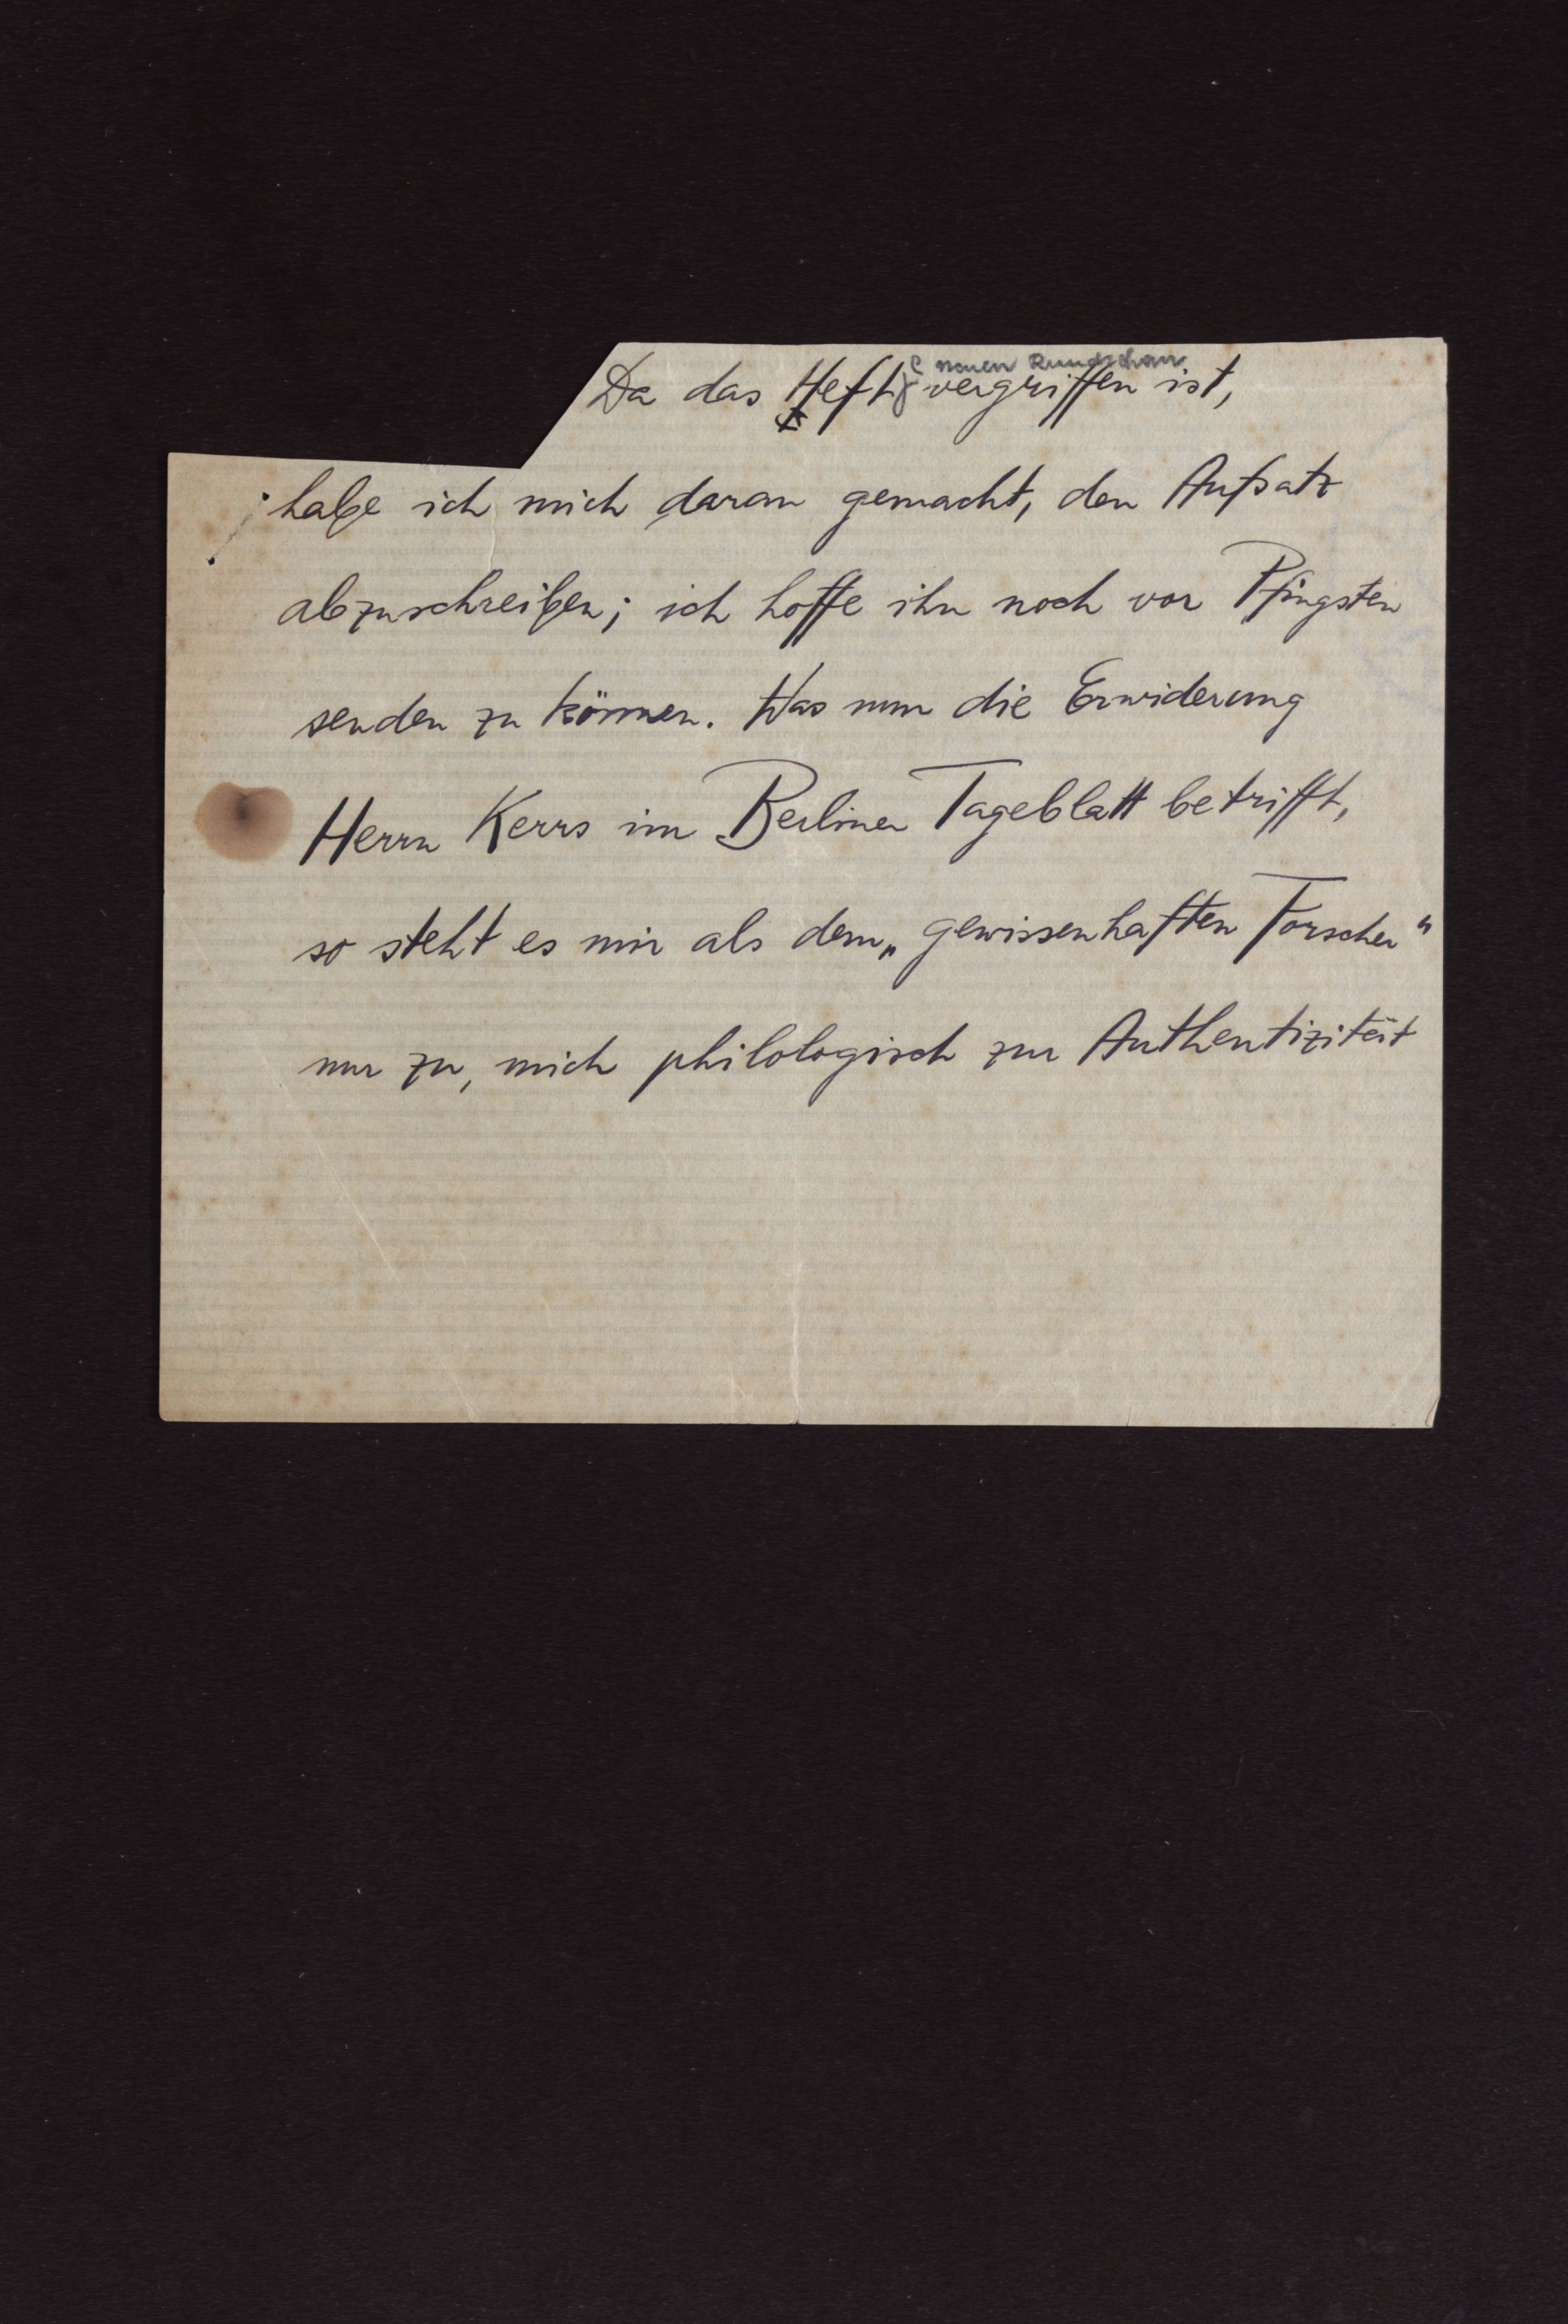 neuen Rundschau
Da das Heft vergriffen ist,
habe ich mich daran gemacht, den Aufsatz
abzuschreiben; ich hoffe ihn noch vor Pfingsten
senden zu können. Was nun die Erwiderung
Herrn Kerrs im Berliner Tageblatt betrifft,
so steht es mir als dem „gewissenhaften Forscher“
nur zu, mich philologisch zur Authentizität